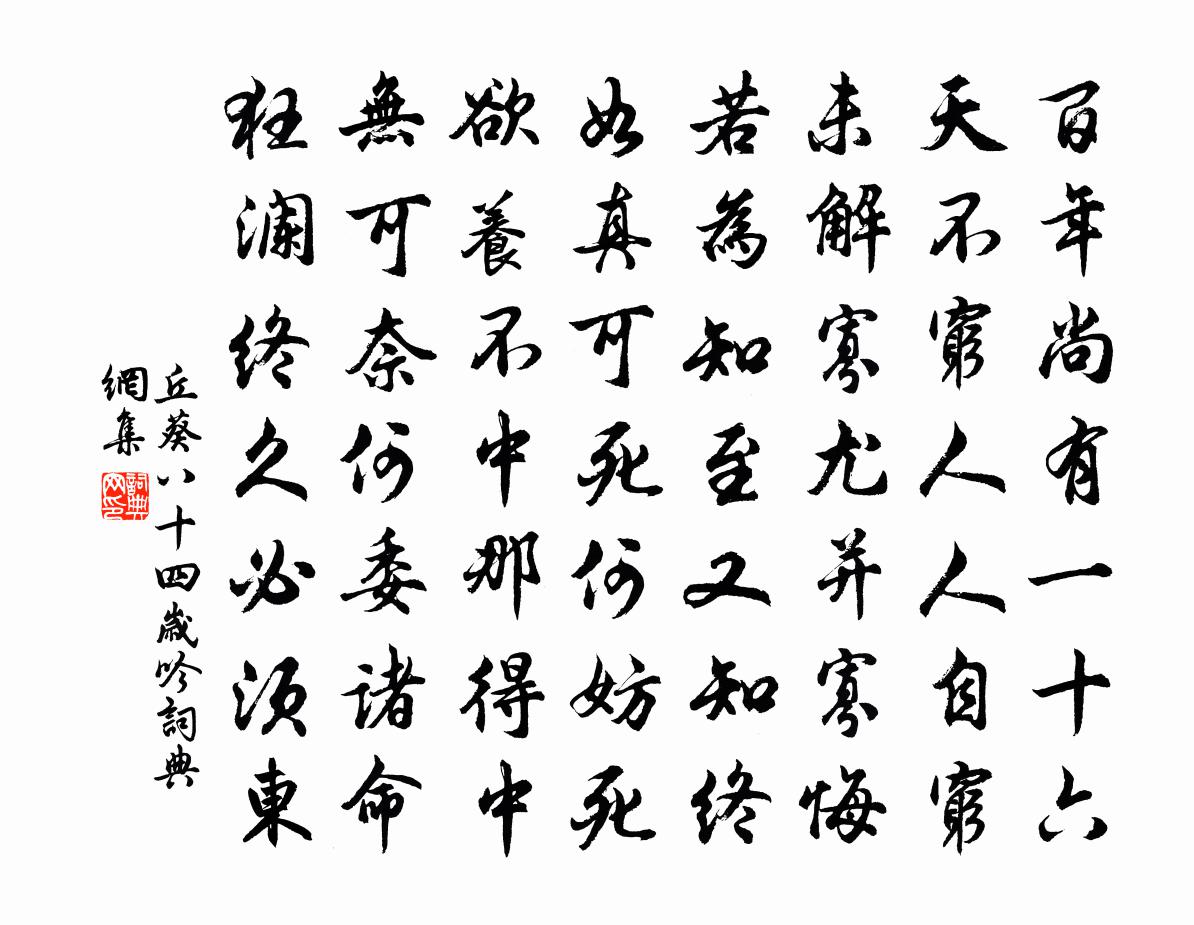 百年尚有一十六
天不窮人人自窮
未解寡尤并寡悔
若為知至又知終
如真可死何妨死
欲養不中那得中
無可奈何委諸命
狂瀾終久必須東
丘葵八十四歲吟詞典
網集
詞典网印